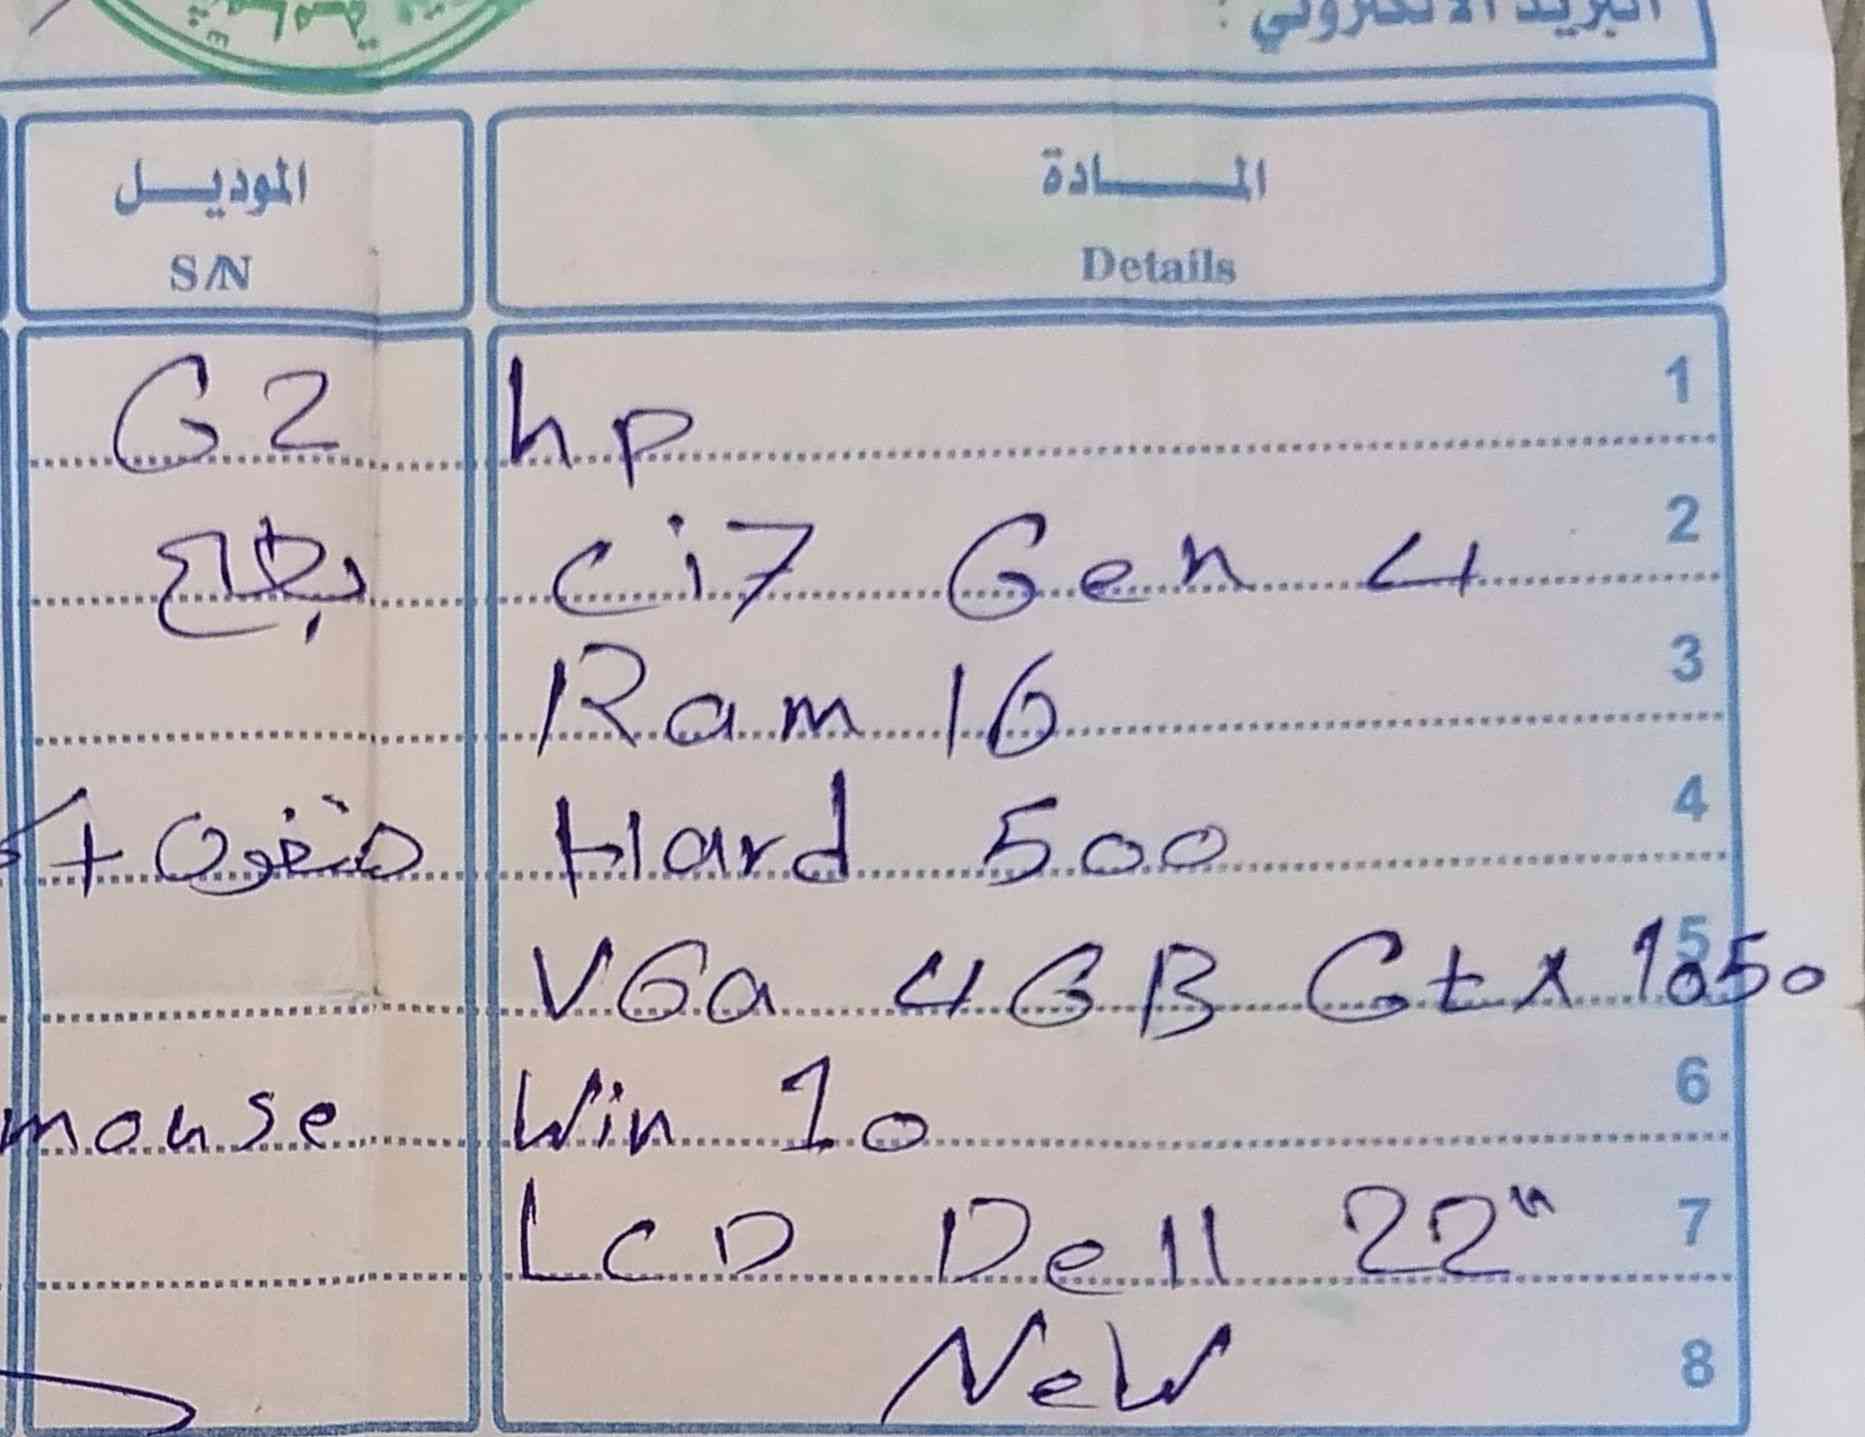 البريد الالكتروني :
المـــادة الموديـل
Details S/N
1 hp G2
2 Ci7 Gen 4
3 Ram 16
4 Hard 500 +
5 VGa 4GB Gtx 1050
6 Win 10 mouse
7 LCD Dell 22"
8 New